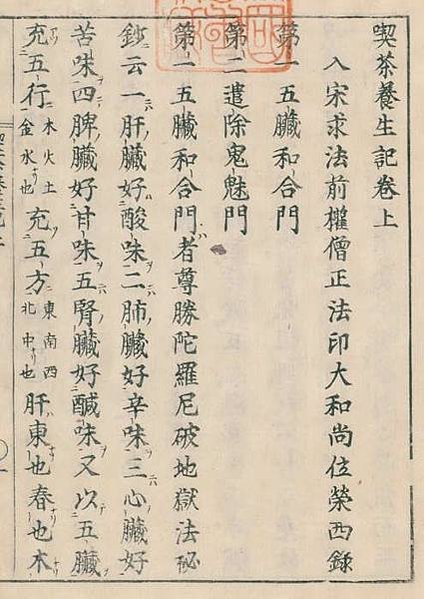 喫茶養生記卷上
入宋求法前權僧正法印大和尚位榮西錄
第一五臟和合門
第二遣除鬼魅門
第一五臟和合門者尊勝陀羅尼破地獄法秘
鈔云一肝臟好酸味二肺臟好辛味三心臟好
苦味四脾臟好甘味五腎臟好鹹味又以五臟
充五行木火土金水也充五方東南西北中也肝東也春也木